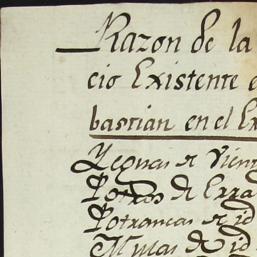 Razon de la
cio Existente e
bastian en el Ex
Yeguas de Vien
Potros de Erra
Potrancas de id
Mulas de id